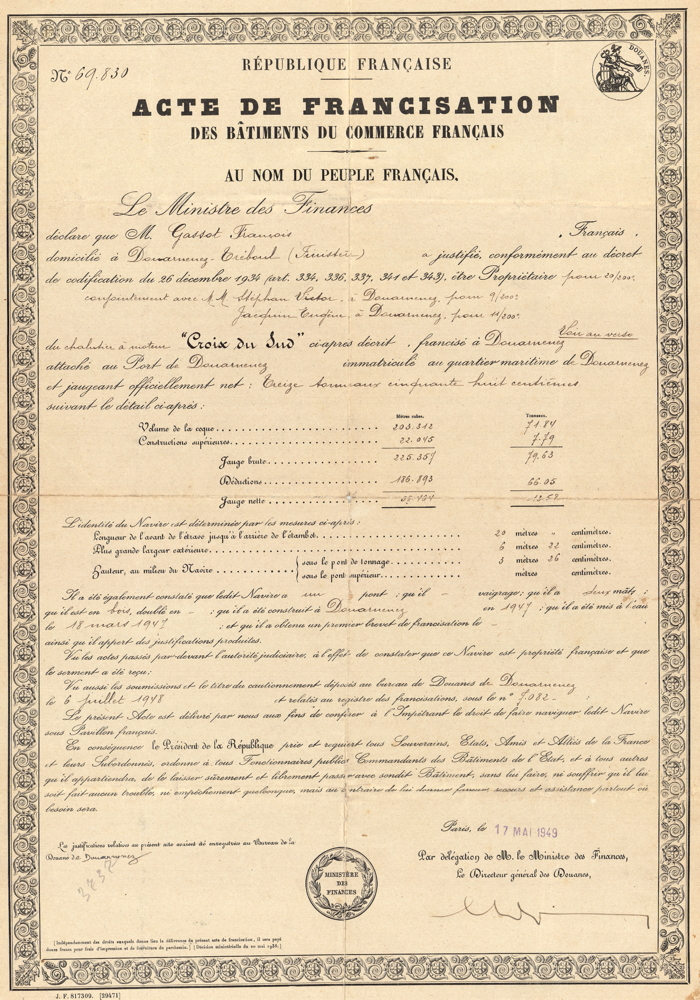 N° 69.830
DOUANES.
RÉPUBLIQUE FRANÇAISE
ACTE DE FRANCISATION
DES BÂTIMENTS DU COMMERCE FRANÇAIS
AU NOM DU PEUPLE FRANÇAIS,
Le Ministre des Finances
déclare que M. Gassot François , Français ,
domicilié à Douarnenez-Tréboul (Finistère) a justifié, conformément au décret
de codification du 26 décembre 1934 (art. 334, 336, 337, 341 et 343), être Propriétaire pour 20/200e
conjointement avec MM Stéphan Victor, à Douarnenez, pour 9/200e
Jacquin Eugène, à Douarnenez, pour 11/200e
Voir au verso
du chalutier à moteur "Croix du Sud" ci-après décrit, francisé à Douarnenez
attaché au Port de Douarnenez immatriculé au quartier maritime de Douarnenez
et jaugeant officiellement net : Treize tonneaux cinquante huit centièmes
suivant le détail ci-après :
Mètres cubes. Tonneaux.
Volume de la coque 203.312 71.84
Constructions supérieures 22.045 7.79
Jauge brute 225.357 79.63
Déductions 186.893 66.05
Jauge nette
L'identité du Navire est déterminée par les mesures ci-après :
Longueur de l'avant de l'étrave jusqu'à l'arrière de l'étambot 20 mètres " centimètres.
Plus grande largeur extérieure 6 mètres 22 centimètres.
Hauteur, au milieu du Navire { sous le pont de tonnage 3 mètres 26 centimètres.
sous le pont supérieur mètres centimètres.
Il a été également constaté que ledit Navire a un pont : qu'il - vaigrage : qu'il a deux mâts :
qu'il est en bois, doublé en - : qu'il a été construit à Douarnenez en 1947 : qu'il a été mis à l'eau
le 18 mars 1947 : et qu'il a obtenu un premier brevet de francisation le -
ainsi qu'il appert des justifications produites.
Vu les actes passés par-devant l'autorité judiciaire, à l'effet de constater que ce Navire est propriété française et que
le serment a été reçu :
Vu aussi les soumissions et le titre du cautionnement déposés au bureau de Douanes de Douarnenez
le 6 juillet 1948 et relatés au registre des francisations, sous le n° 7.082 - :
Le présent Acte est délivré par nous aux fins de conférer à l'Impétrant le droit de faire naviguer ledit Navire
sous Pavillon français.
En conséquence le Président de la République prie et requiert tous Souverains, États, Amis et Alliés de la France
et leurs Subordonnés, ordonne à tous Fonctionnaires publics Commandants des Bâtiments de l'État, et à tous autres
qu'il appartiendra, de le laisser sûrement et librement passer avec sondit Bâtiment, sans lui faire, ni souffrir qu'il lui
soit fait aucun trouble, ni empêchement quelconque, mais au contraire de lui donner faveur, secours et assistance partout où
besoin sera.
Paris, le 17 MAI 1949
Les justifications relatives au présent acte avaient été enregistrées au Bureau de la
Douane de Douarnenez
Par délégation de M. le Ministre des Finances,
Le Directeur général des Douanes,
MINISTÈRE
DES
FINANCES
[Indépendamment des droits auxquels donne lieu la délivrance du présent acte de francisation, il sera payé
douze francs pour frais d'impression et de fourniture du parchemin.] [Décision ministérielle du 20 mai 1926.]
J. F. 817309. [29471]